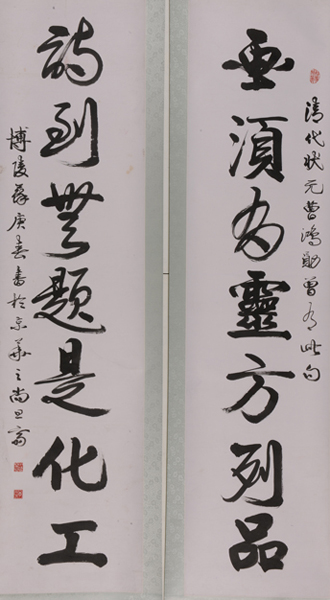 清代狀元曹鴻勛曾有此句
須為靈方列品
詩到無題是化工
博陵蘇庚春書於京華之尚旦齋